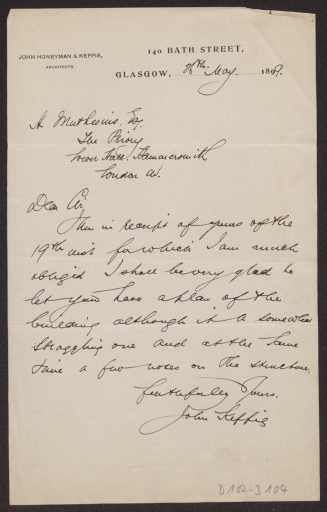 JOHN HONEYMAN & KEPPIE,
ARCHITECTS.
140 BATH STREET,
GLASGOW, May 189
H Muthesius, Esq
The Priory
Hammersmith
London W.
Dear Sir,
I am in receipt of yours of the
19th inst for which I am much
obliged I shall be very glad to
let you have a plan of the
building although it is a somewhat
straggling one and at the same
time a few notes on the structure.
faithfully Yours.
John Keppie
D 102-3104